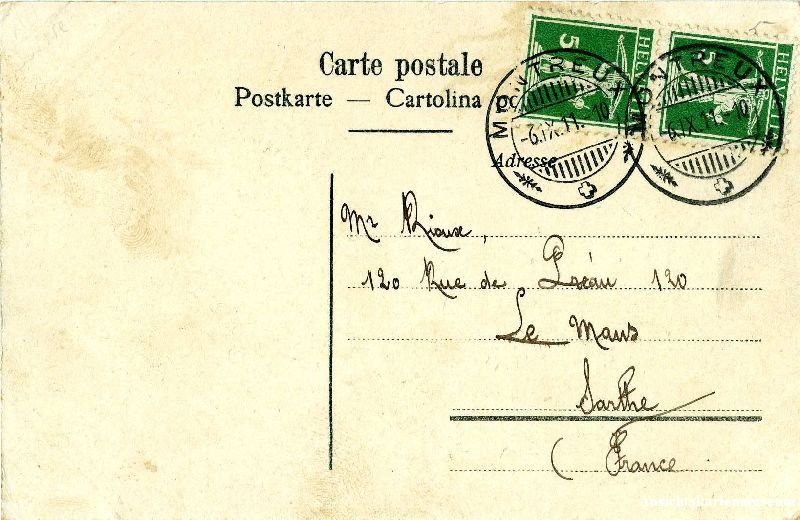 Carte postale
Postkarte — Cartolina po
HELV
5
HELVETIA
5
MONTREUX
-6.IX.11.-10
MONTREUX
-6.IX.11.-10
Adresse
Mr Rioux,
120 Rue de Préau 120
Le Mans
Sarthe
(France
Ansichtskartenmuseum